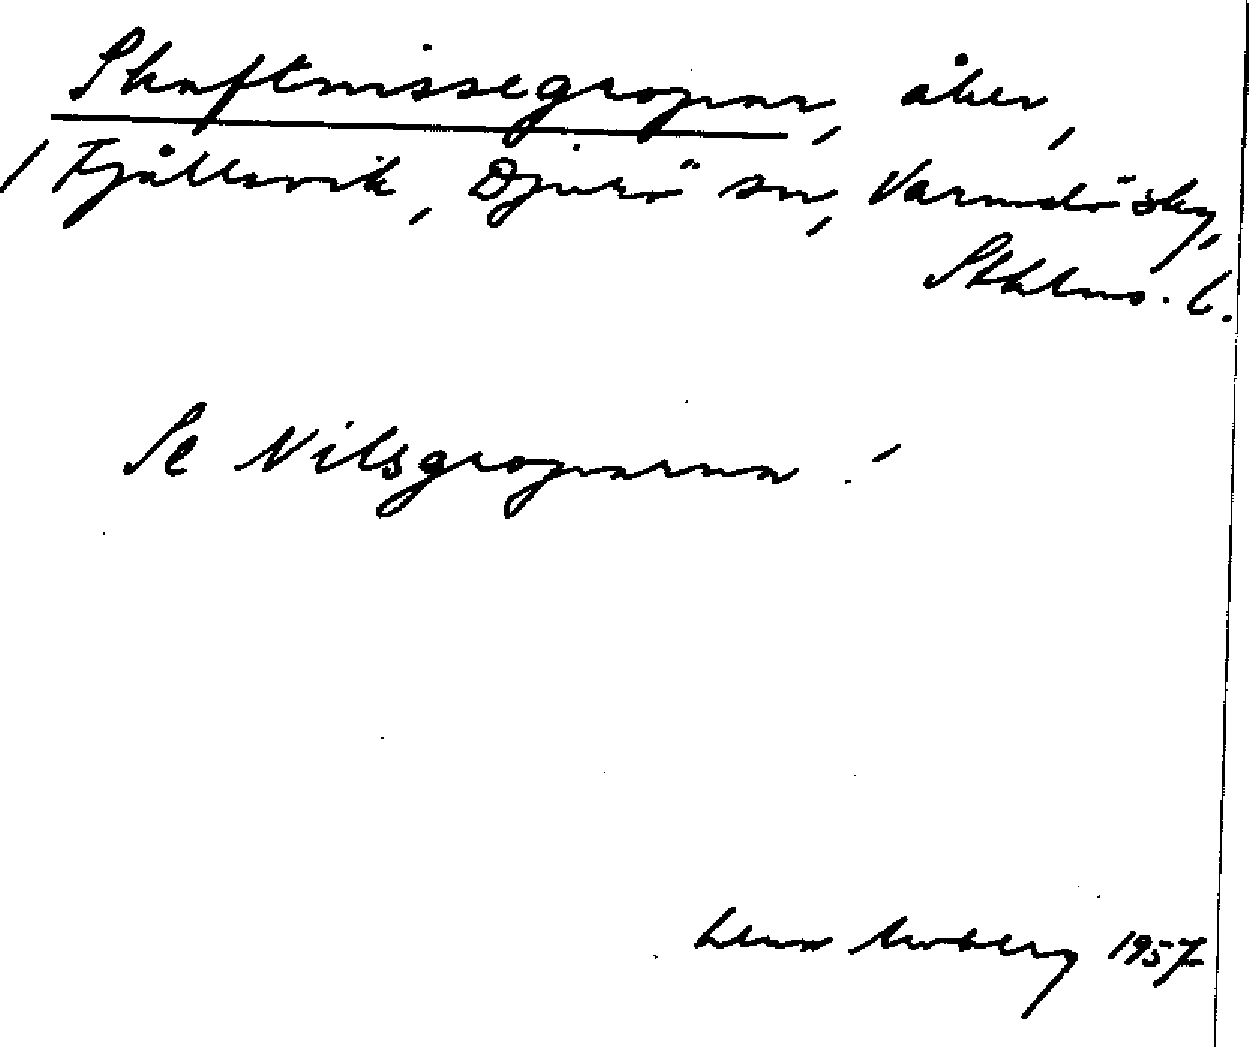 Skaftnissegropar, åker,
/ Fjällsvik, Djurö sn, Värmdö skg,
Sthlms. l.
Se Nilsgroparna!
Lena Moberg 1957